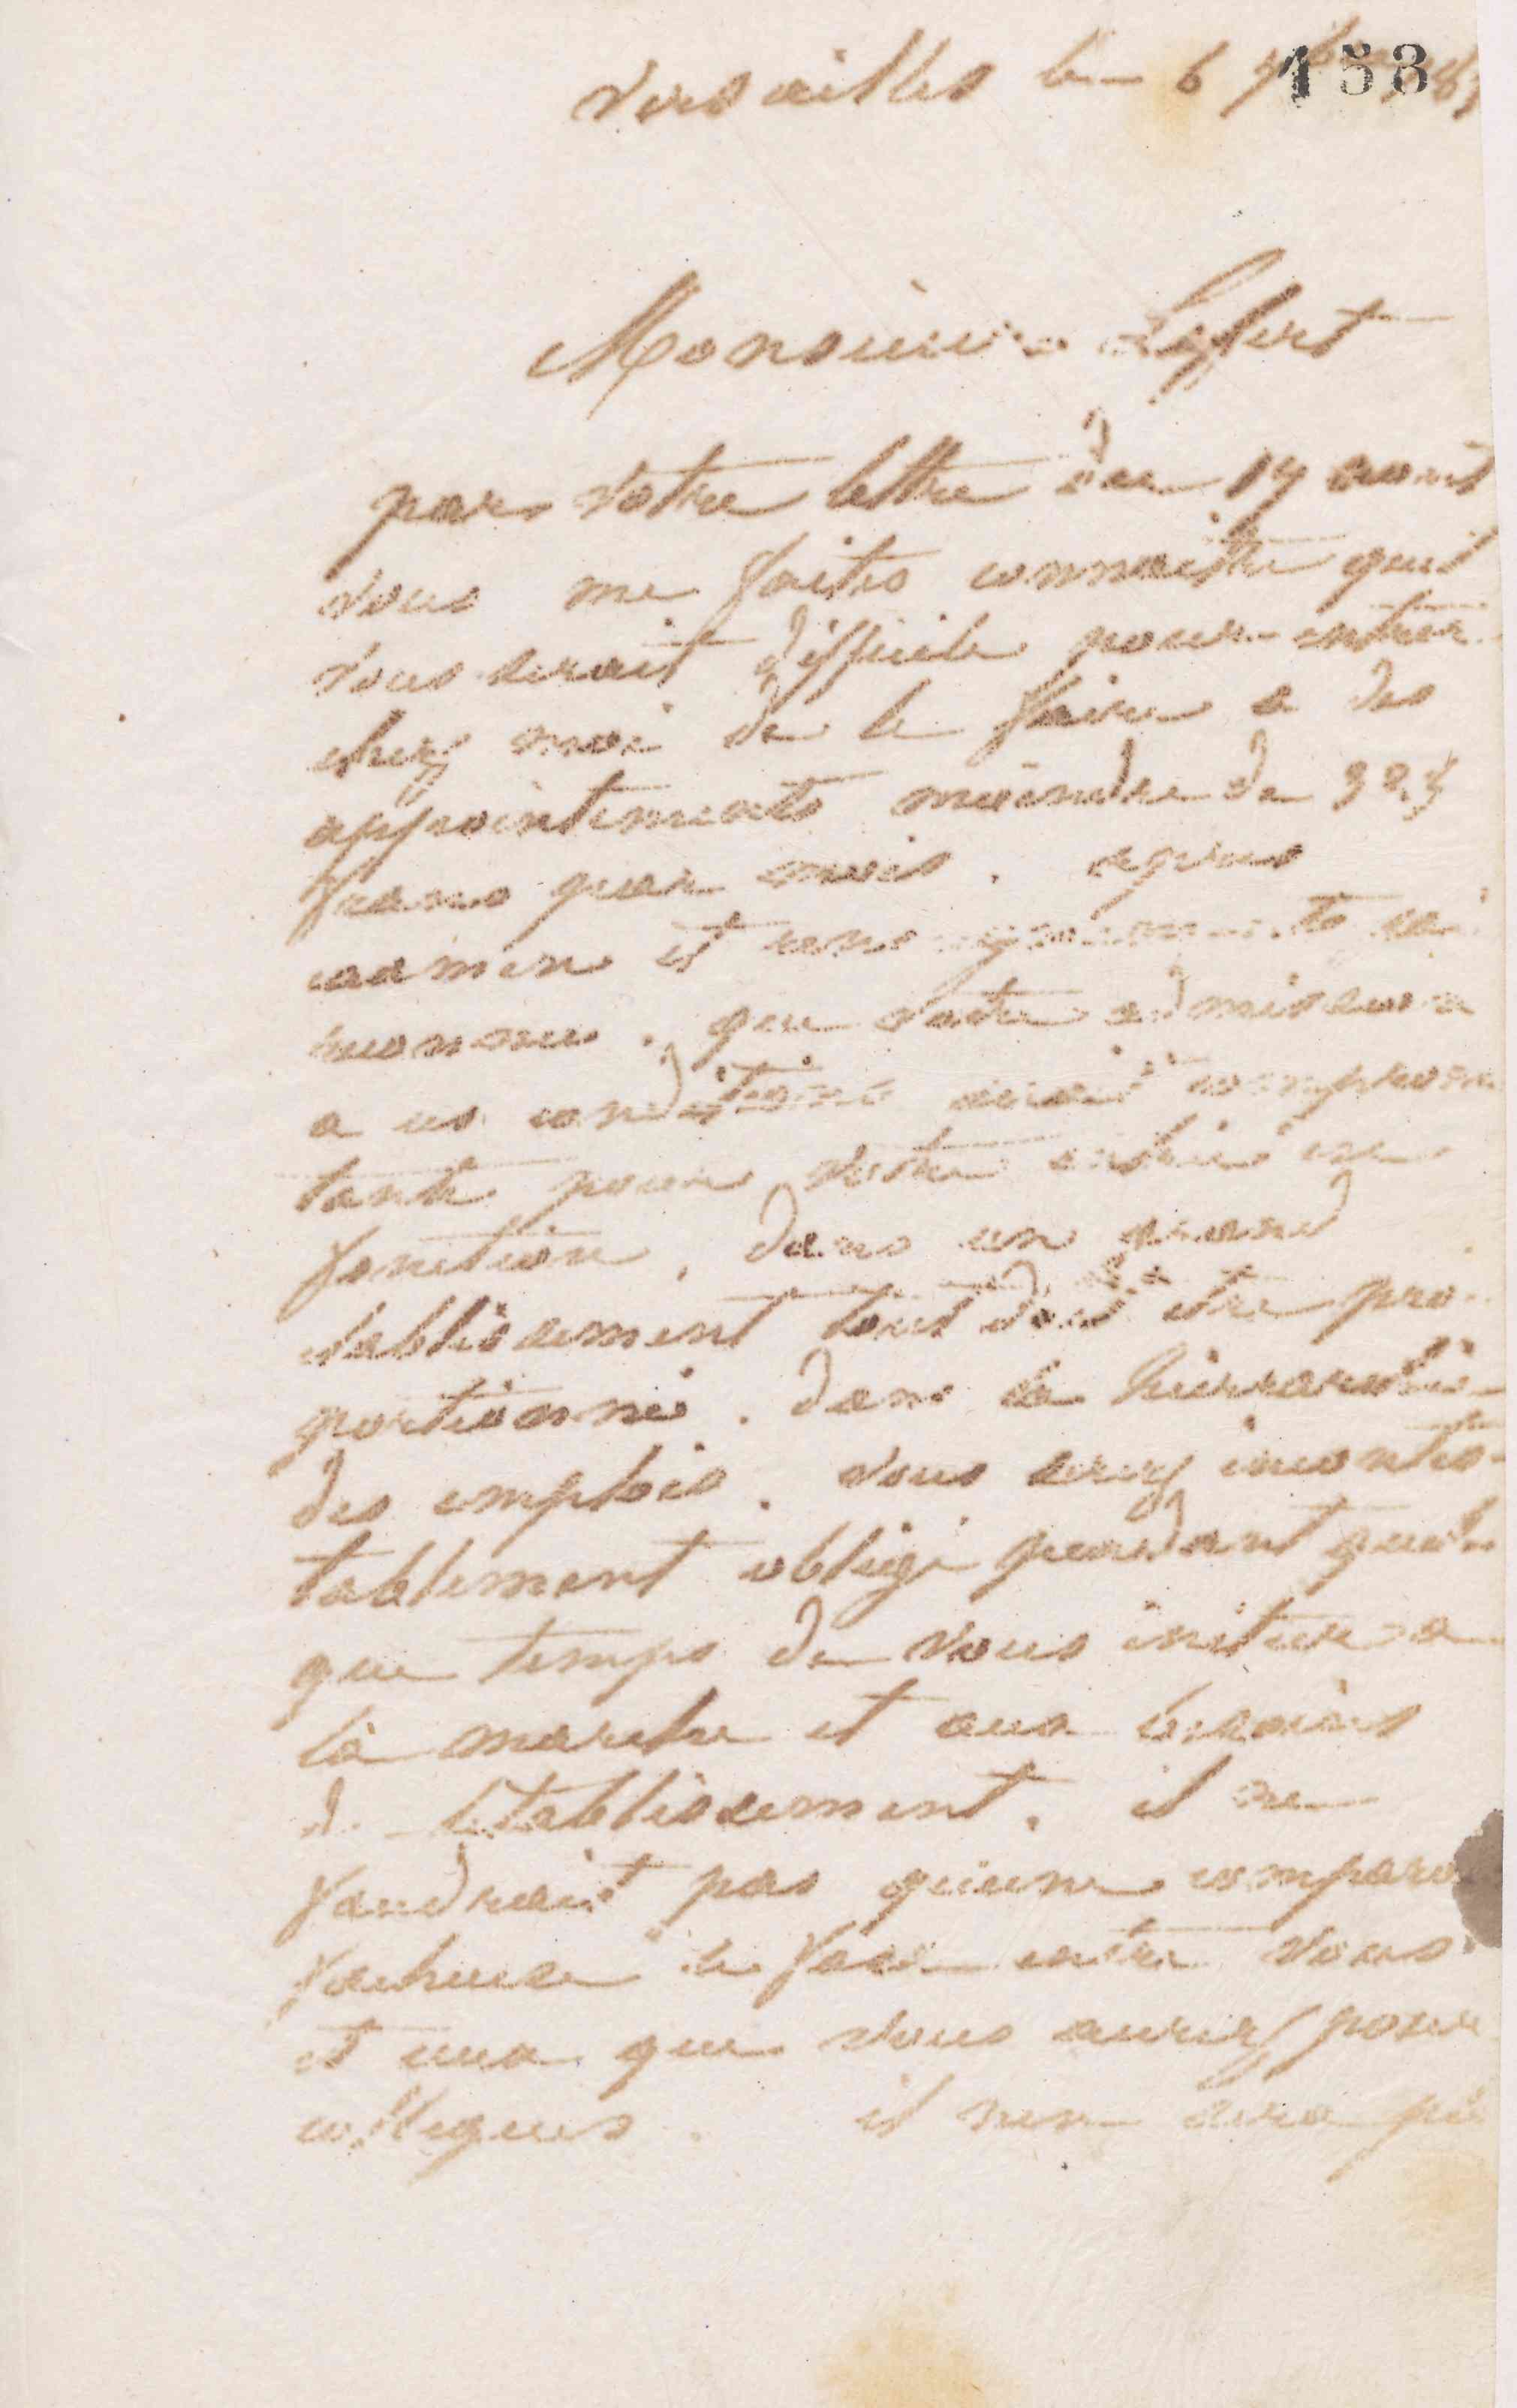 153
Versailles le 6
Monsieur
par votre lettre du 17 aout
vous me faites connaitre quil
vous serait difficile pour entrer
chez moi de le faire a des
appointements moindre de
francs par mois. apres
examen et renseignements
reconnu. que votre admission
a ces conditions serait
pour votre entrée en
fonction. dans un grand
etablissement tout doit etre pro-
portionné. dans la hierarchie
des emplois. vous serez incontes-
tablement obligé pendant quel-
que temps de vous initier a
la marche et aux besoins
de letablissement. il ne
faudrait pas quune
facheuse se fasse entre vous
et ceux que vous aurez pour
collegues. il nen sera